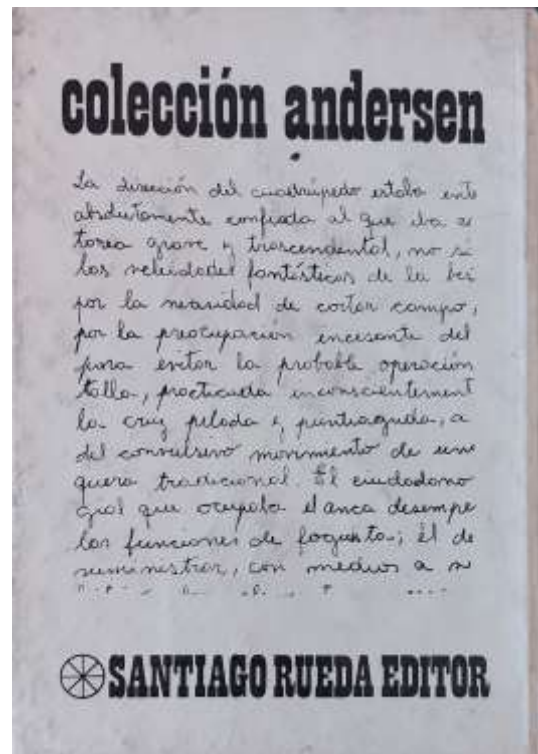 colección andersen
La dirección del cuadrúpedo estaba ente
absolutamente confiada al que iba a
tarea grave y trascendental, no si
las veleidades fantásticas de la bes
por la necesidad de cortar campo,
por la preocupación incesante del
para evitar la probable operación
talla, practicada inconscientement
la cruz pelada y puntiaguda, a
del convulsivo movimiento de una
quera tradicional. El ciudadano
gial que ocupaba el anca desempe
las funciones de foguista; él de
suministrar, con medios a su
SANTIAGO RUEDA EDITOR